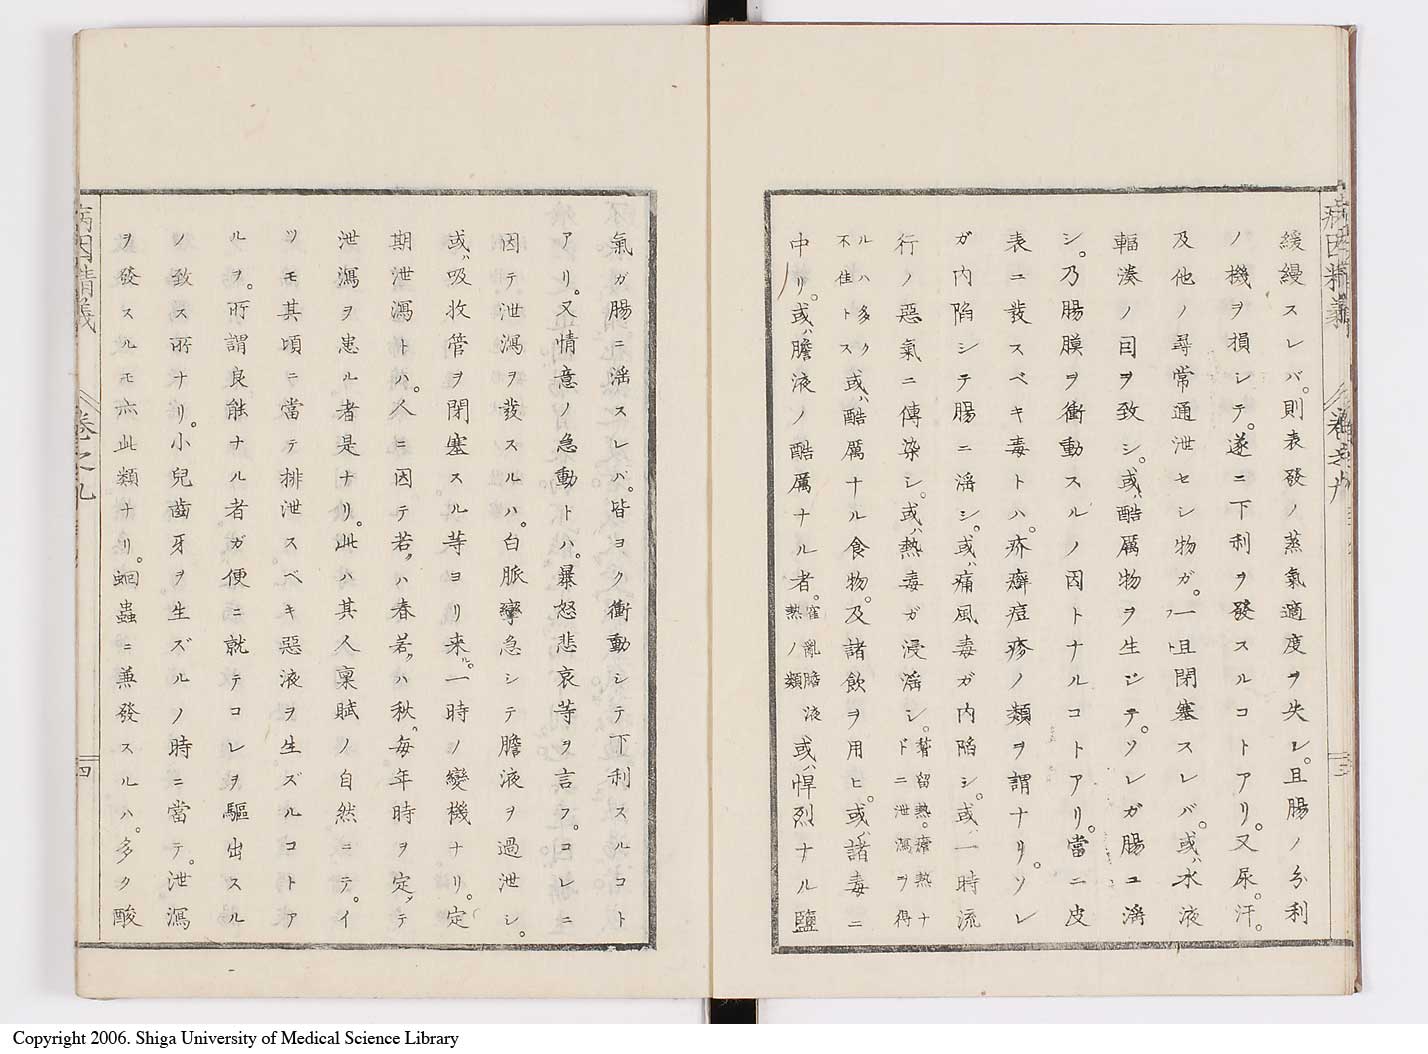 病因精義
緩縵スレバ。則表發ノ蒸氣適度ヲ失シ。且腸ノ分利
ノ機ヲ損シテ。遂ニ下利ヲ發スルコトアリ。又尿。汗。
及他ノ尋常通泄セシ物ガ。一旦閉塞スレバ。或ハ水液
輻湊ノ因ヲ致シ。或ハ酷厲物ヲ生ジテ。ソレガ腸ニ淫
シ。乃腸膜ヲ衝動スルノ因トナルコトアリ。當ニ皮
表ニ發スベキ毒トハ。疥癬痘疹ノ類ヲ謂ナリ。ソレ
ガ内陷シテ腸ニ淫シ。或ハ痛風毒ガ内陷シ。或ハ一時流
行ノ惡氣ニ傳染シ。或ハ熱毒ガ浸淫シ。稽留熱。熱ナ
ドニ泄瀉ヲ得
ルハ多ク
不佳トス
或ハ酷厲ナル食物。及諸飲ヲ用ヒ。或ハ諸毒ニ
中リ。或ハ膽液ノ酷厲ナル者。霍亂膽液
熱ノ類
或ハ悍烈ナル鹽
氣ガ腸ニ淫スレバ。皆ヨク衝動シテ下利スルコト
アリ。又情意ノ急動トハ。暴怒悲哀等ヲ言フ。コレニ
因テ泄瀉ヲ發スルハ。白脈攣急シテ膽液ヲ過泄シ。
或ハ吸收管ヲ閉塞スル等ヨリ来ル。一時ノ變機ナリ。定
期泄瀉トハ。人ニ因テ若クハ春若クハ秋。每年時ヲ定テ
泄瀉ヲ患ル者是ナリ。此ハ其人稟賦ノ自然ニテ。イ
ツモ其頃ニ當テ排泄スベキ惡液ヲ生ズルコトア
ルヲ。所謂良能ナル者ガ便ニ就テコレヲ驅出スル
ノ致ス所ナリ。小兒齒牙ヲ生ズルノ時ニ當テ。泄瀉
ヲ發スルモ亦此類ナリ。蛔蟲ニ兼發スルハ。多ク酸
病因精義
卷之九
四
Copyright 2006. Shiga University of Medical Science Library